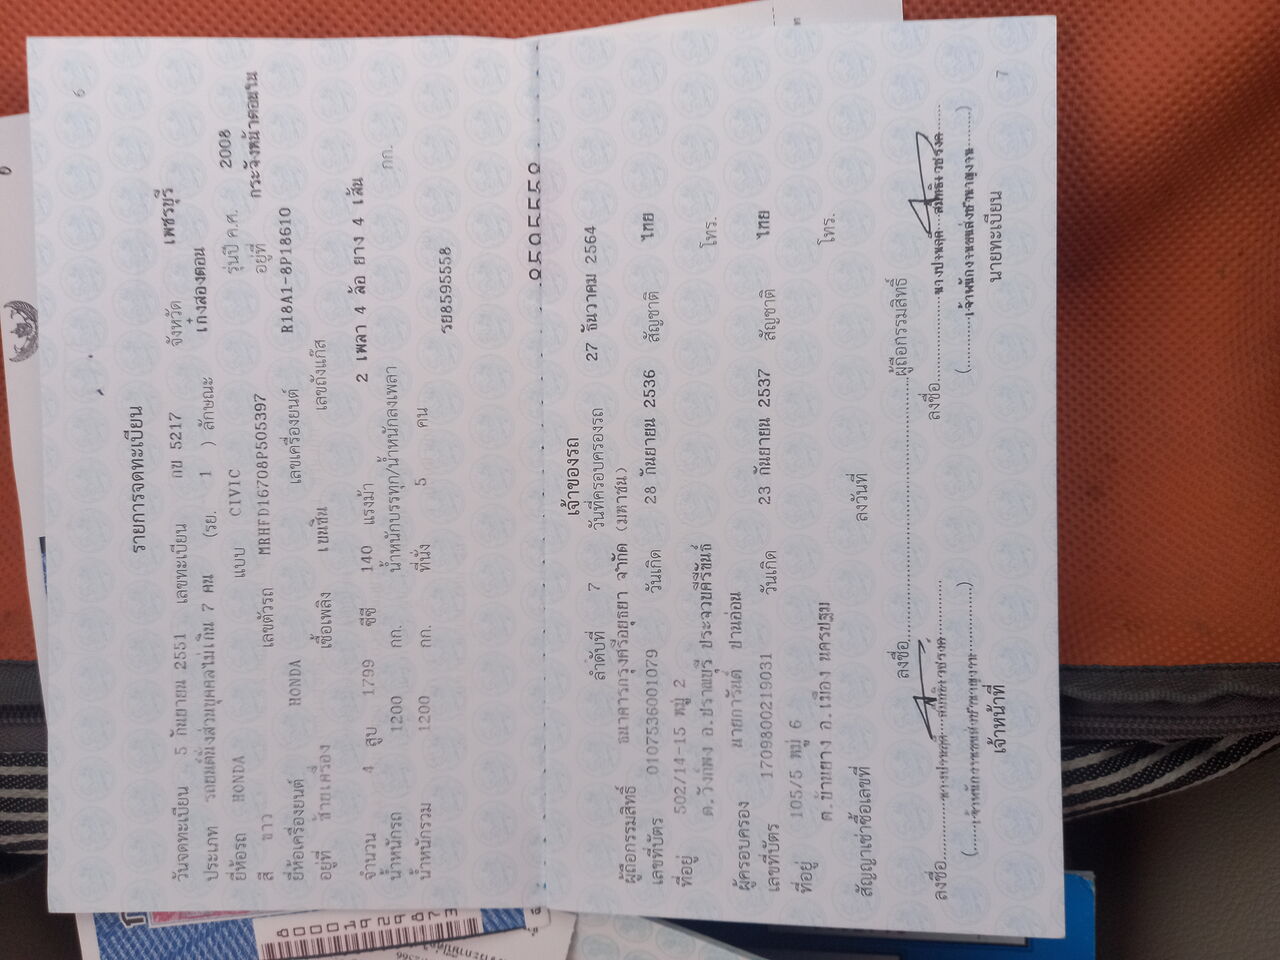 6
รายการจดทะเบียน
วันจดทะเบียน 5 กันยายน 2551 เลขทะเบียน กข 5217 จังหวัด เพชรบุรี
ประเภท รถยนต์นั่งส่วนบุคคลไม่เกิน 7 คน (รย. 1 ) ลักษณะ เก๋งสองตอน
ยี่ห้อรถ HONDA แบบ CIVIC รุ่นปี ค.ศ. 2008
สี ขาว เลขตัวรถ MRHFD16708P505397 อยู่ที่ กระจังหน้าตอนใน
ยี่ห้อเครื่องยนต์ HONDA เลขเครื่องยนต์ R18A1-8P18610
อยู่ที่ ซ้ายเครื่อง เชื้อเพลิง เบนซิน เลขถังแก๊ส
จำนวน 4 สูบ 1799 ซีซี 140 แรงม้า 2 เพลา 4 ล้อ ยาง 4 เส้น
น้ำหนักรถ 1200 กก. น้ำหนักบรรทุก/น้ำหนักลงเพลา กก.
น้ำหนักรวม 1200 กก. ที่นั่ง 5 คน รย8595558
8595558
เจ้าของรถ
ลำดับที่ 7 วันที่ครอบครองรถ 27 ธันวาคม 2564
ผู้ถือกรรมสิทธิ์ ธนาคารกรุงศรีอยุธยา จำกัด (มหาชน)
เลขที่บัตร 0107536001079 วันเกิด 28 กันยายน 2536 สัญชาติ ไทย
ที่อยู่ 502/14-15 หมู่ 2 โทร.
ต.วังก์พง อ.ปราณบุรี ประจวบคีรีขันธ์
ผู้ครอบครอง นายการันต์ ปานอ่อน
เลขที่บัตร 1709800219031 วันเกิด 23 กันยายน 2537 สัญชาติ ไทย
ที่อยู่ 105/5 หมู่ 6 โทร.
ต.บ้านยาง อ.เมือง นครปฐม
สัญญาเช่าซื้อเลขที่ ลงวันที่
ลงชื่อ ผู้ถือกรรมสิทธิ์
ลงชื่อ ลงชื่อ
เจ้าหน้าที่ นายทะเบียน
7